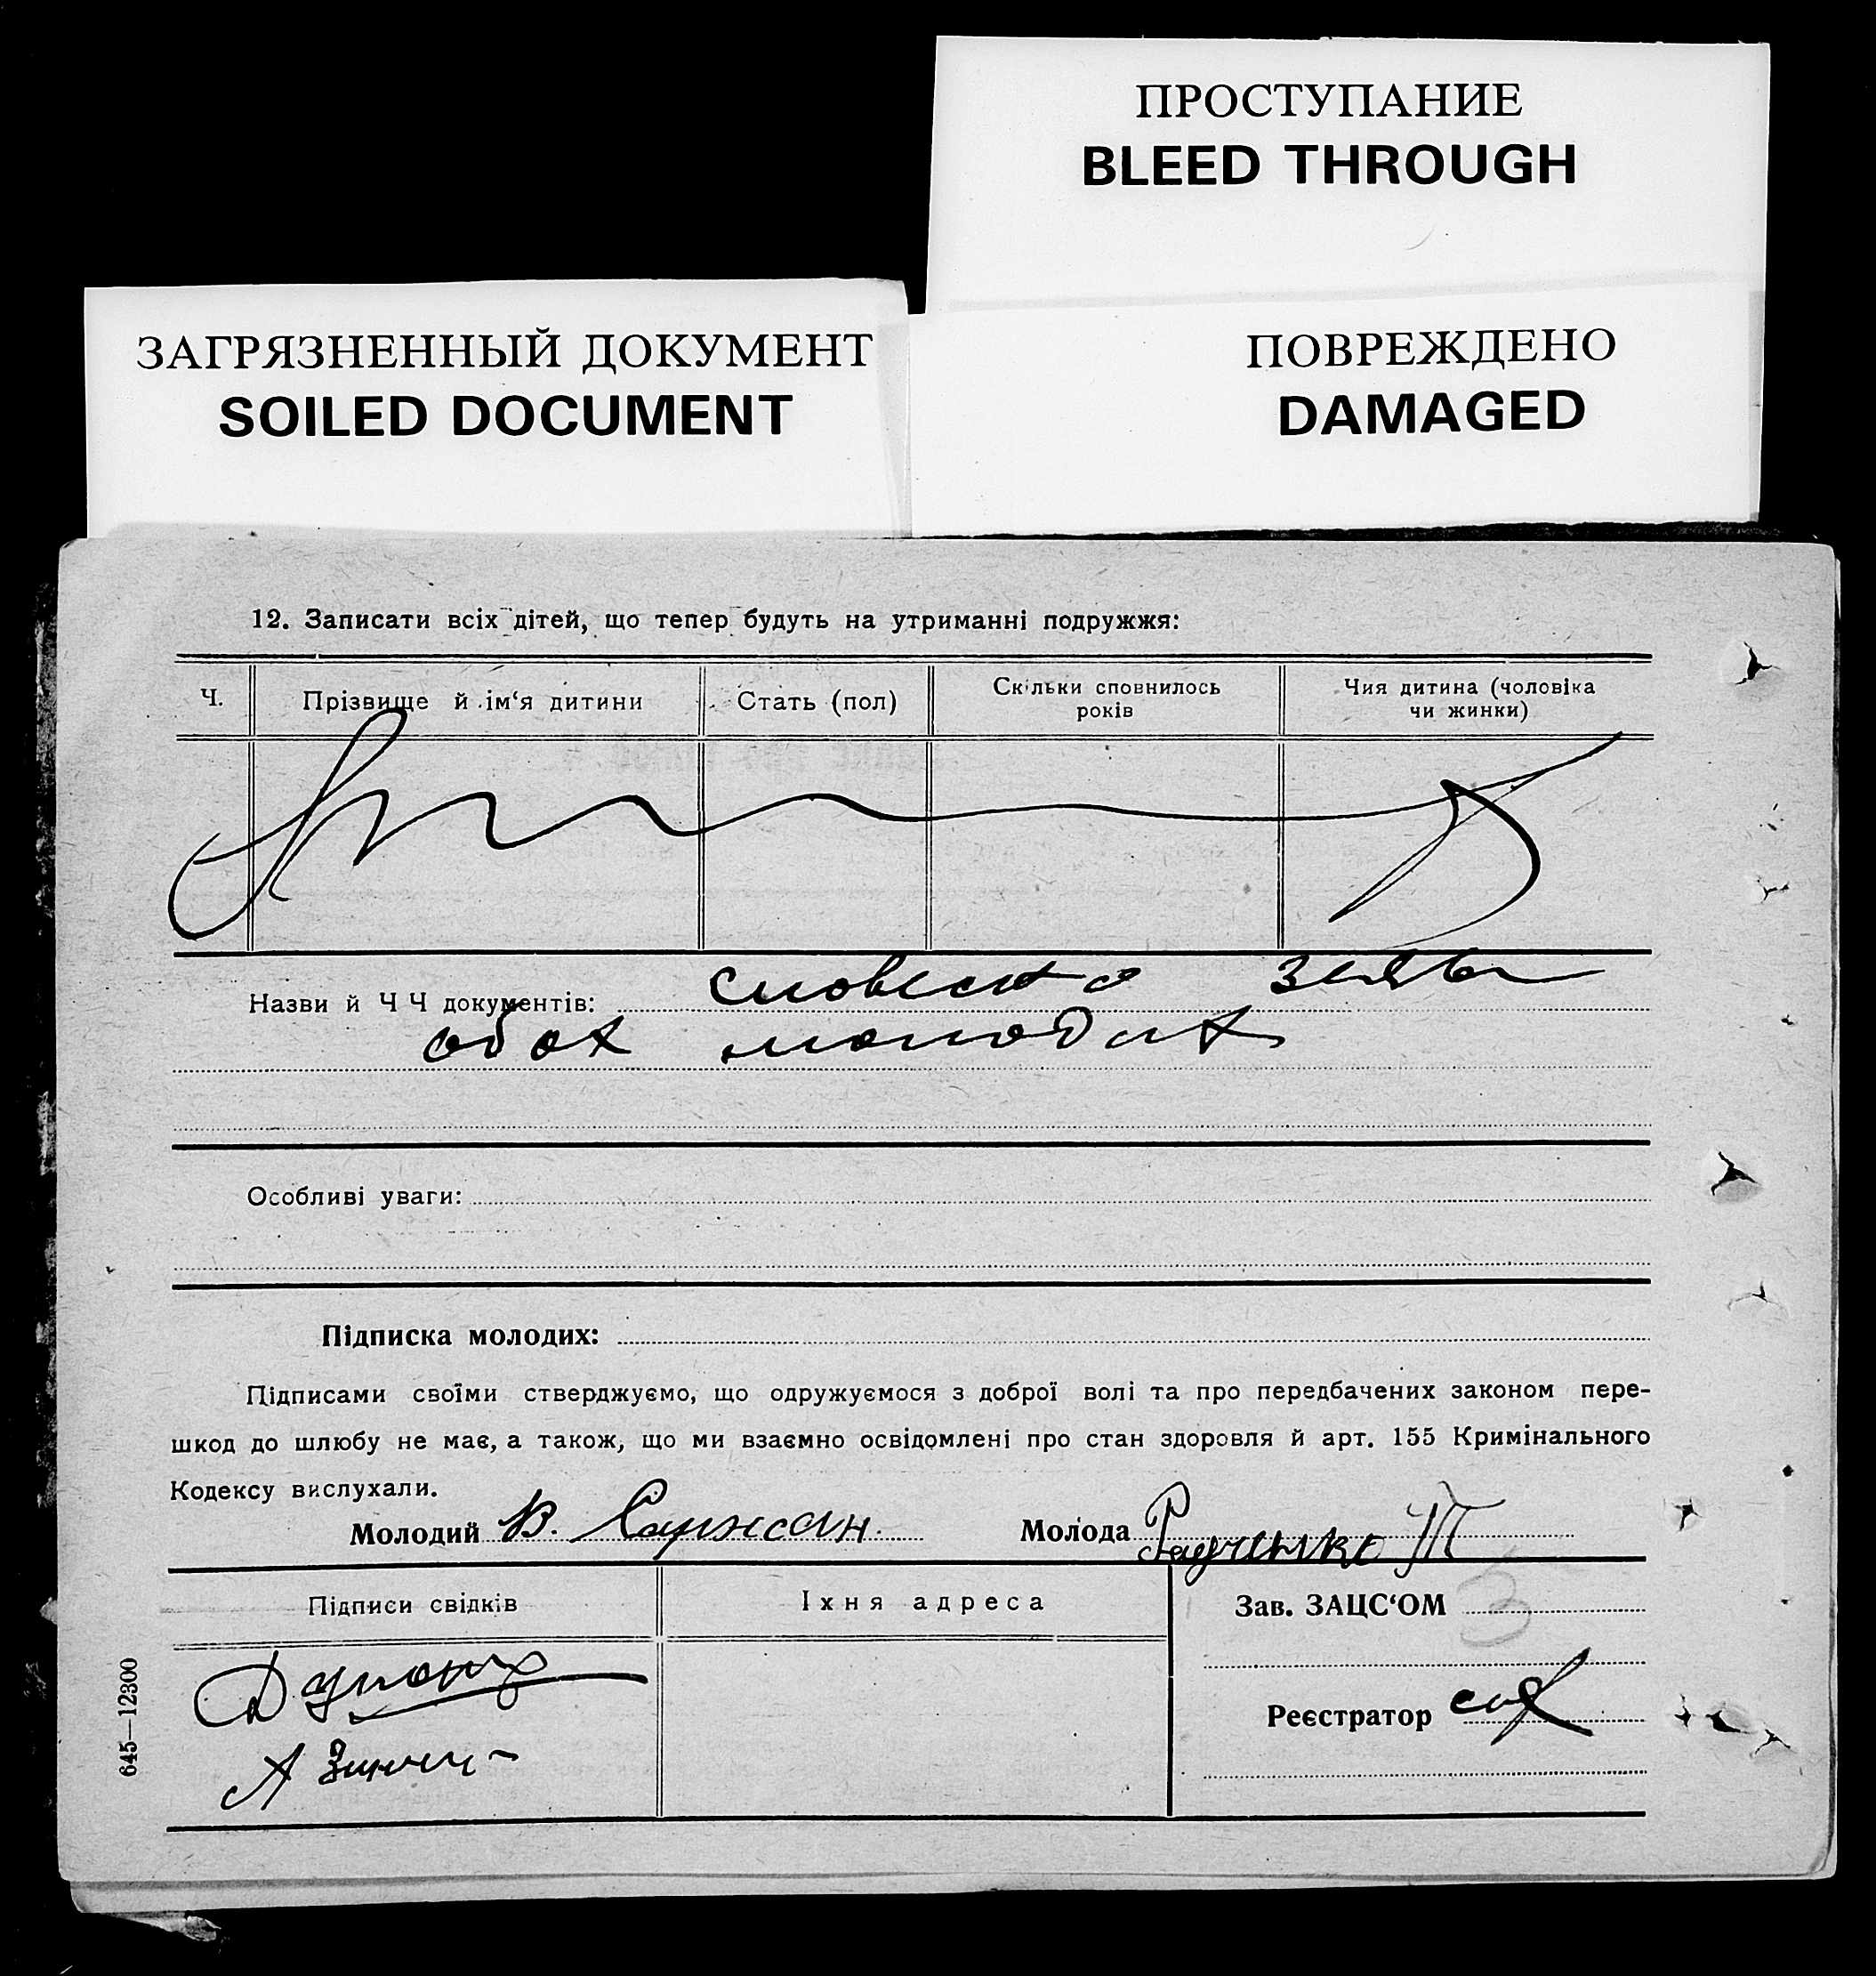 ПРОСТУПАНИЕ
BLEED THROUGH
ЗАГРЯЗНЕННЫЙ ДОКУМЕНТ
SOILED DOCUMENT
ПОВРЕЖДЕНО
DAMAGED
12. Записати всіх дітей, що тепер будуть на утриманні подружжя:
Ч.
Прізвище й ім‘я дитини
Стать (пол)
Скільки сповнилось
років
Чия дитина (чоловіка
чи жинки)
Назви й Ч Ч документів: словесна заява
обох молодих
Особливі уваги:
Підписка молодих:
Підписами своїми стверджуємо, що одружуємося з доброї волі та про передбачених законом пере-
шкод до шлюбу не має, а також, що ми взаємно освідомлені про стан здоровля й арт. 155 Кримінального
Кодексу вислухали.
Молодий В.
Молода Радченко Т
Підписи свідків
Їхня адреса
Зав. ЗАЦС‘ОМ
А
Реєстратор
645—12300